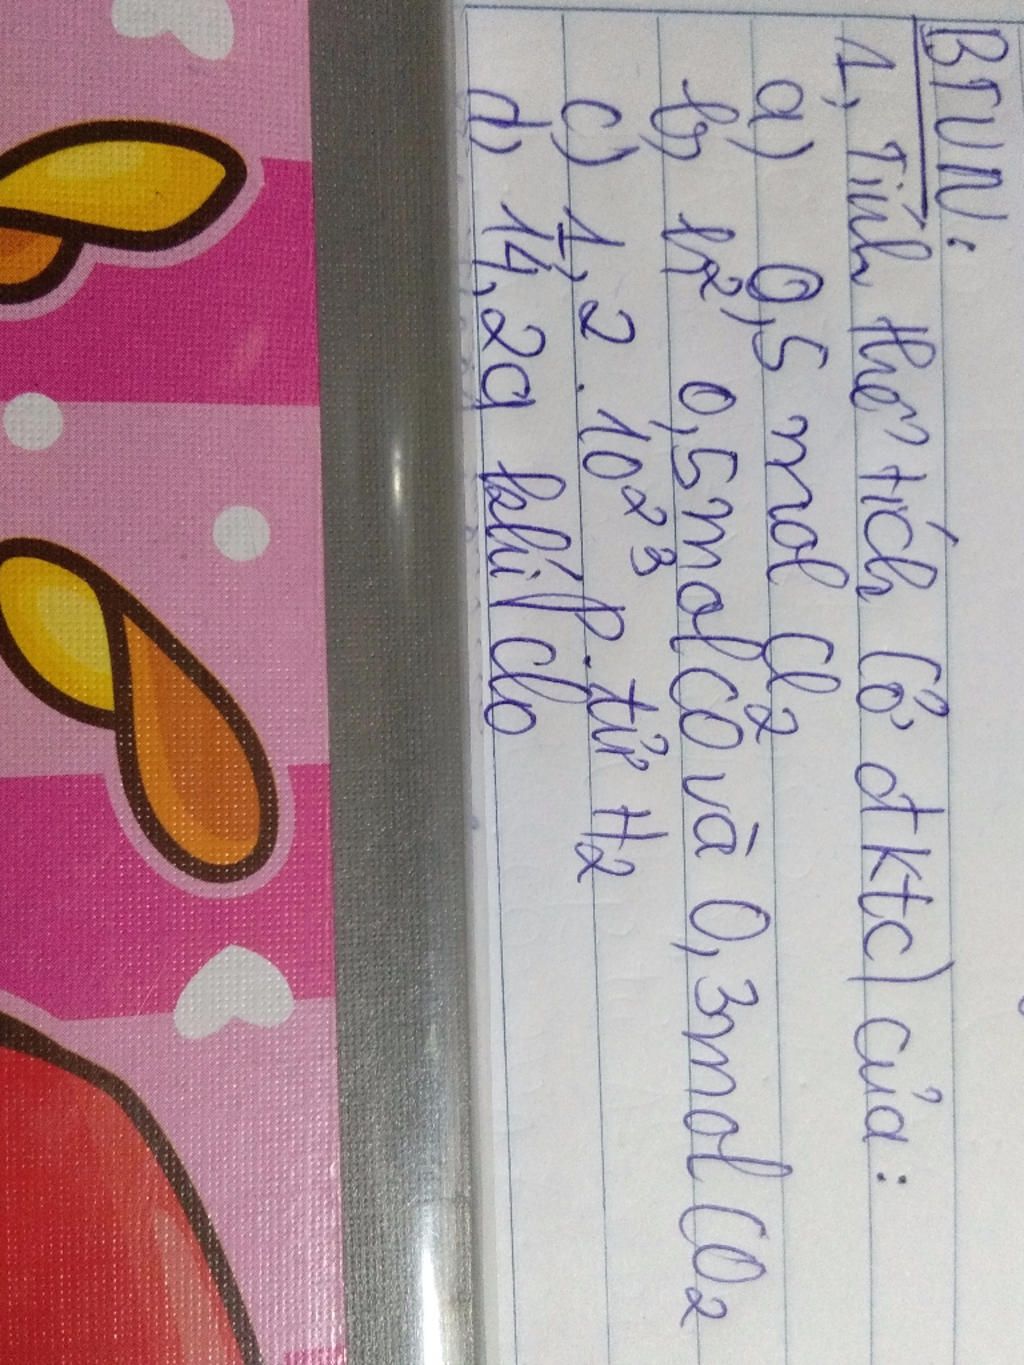 BTVN:
1, Tính thể tích (ở đktc) của:
a) 0,5 mol Cl2
b, h2 0,5mol CO và 0,3mol CO2
c) 1,2 . 10²³ p.tử H2
d) 14,2g khí clo